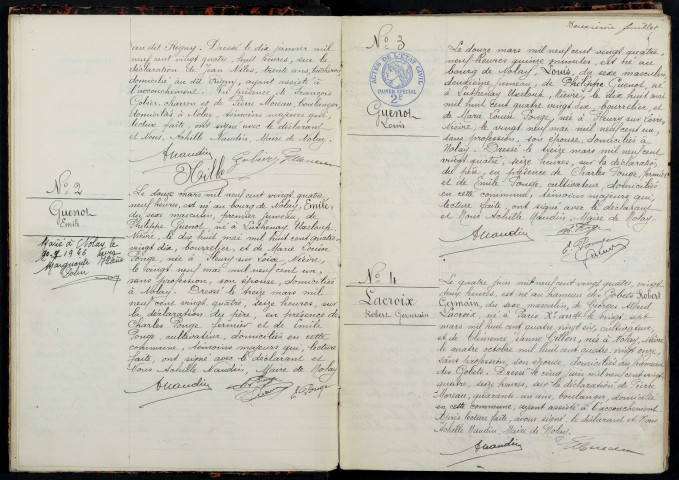 au dit Rigny. Dressé le dix janvier mil
neuf cent vingt quatre, huit heures, sur la
déclaration de Jean Miles, trente ans,
domicilié au dit Rigny, ayant assisté à
l'accouchement. En présence de François
charron et de Pierre Moreau, boulanger,
domiciliés à Nolay, témoins majeurs qui,
lecture faite, ont signé avec le déclarant
et Nous, Achille Naudin, Maire de Nolay.
ANaudin
No 2
Guenot
Emile
Marié à Nolay le
Marguerite
Le douze mars mil neuf cent vingt quatre
neuf heures, est né au bourg de Nolay, Emile,
du sexe masculin, premier jumeau, de
Philippe Guenot, né à Luthenay Uxeloup,
Nièvre, le dix huit mai mil huit cent quatre-
vingt dix, bourrelier, et de Marie Louise
Ponge, née à Fleury sur Loire, Nièvre,
le vingt neuf mai mil neuf cent un,
sans profession, son épouse, domiciliés
à Nolay. Dressé le treize mars mil
neuf cent vingt quatre, seize heures, sur
la déclaration du père, en présence de
Charles Ponge fermier et de Emile
Ponge cultivateur, domiciliés en cette
commune, témoins majeurs qui, lecture
faite, ont signé avec le déclarant et
Nous Achille Naudin, Maire de Nolay
ANaudin
E. Ponge
Deuxième feuillet
No 3
ACTES DE L'ETAT CIVIL
PAPIER SPECIAL
2F
Guenot
Louis
Le douze mars mil neuf cent vingt quatre,
neuf heures quinze minutes, est né au
bourg de Nolay, Louis, du sexe masculin,
deuxième jumeau, de Philippe Guenot, né
à Luthenay Uxeloup, Nièvre, le dix huit mai
mil huit cent quatre vingt dix, bourrelier, et
de Marie Louise Ponge, née à Fleury sur Loire,
Nièvre, le vingt neuf mai mil neuf cent un,
sans profession, son épouse, domiciliés à
Nolay. Dressé le treize mars mil neuf cent
vingt quatre, seize heures, sur la déclaration
du père, en présence de Charles Ponge, fermier
et de Emile Ponge, cultivateur, domiciliés
en cette commune, témoins majeurs qui,
lecture faite, ont signé avec le déclarant
et Nous Achille Naudin, Maire de Nolay.
ANaudin
E. Ponge
No 4
Lacroix
Robert Germain
Le quatre juin mil neuf cent vingt quatre, vingt-
heures, est né au hameau des Gobets Robert
Germain, du sexe masculin, de Georges Albert
Lacroix, né à Paris Xe arrdt le vingt sept
mars mil huit cent quatre vingt six, cultivateur,
et de Clémence Jeanne Gillon, née à Nolay, Nièvre,
le quatre octobre mil huit cent quatre vingt onze,
sans profession, son épouse, domiciliés au hameau
des Gobets. Dressé le cinq juin mil neuf cent vingt
quatre, seize heures, sur la déclaration de Pierre
Moreau, quarante un ans, boulanger, domicilié
en cette commune, ayant assisté à l'accouchement.
Après lecture faite, avons signé, le déclarant et Nous
Achille Naudin, Maire de Nolay.
ANaudin